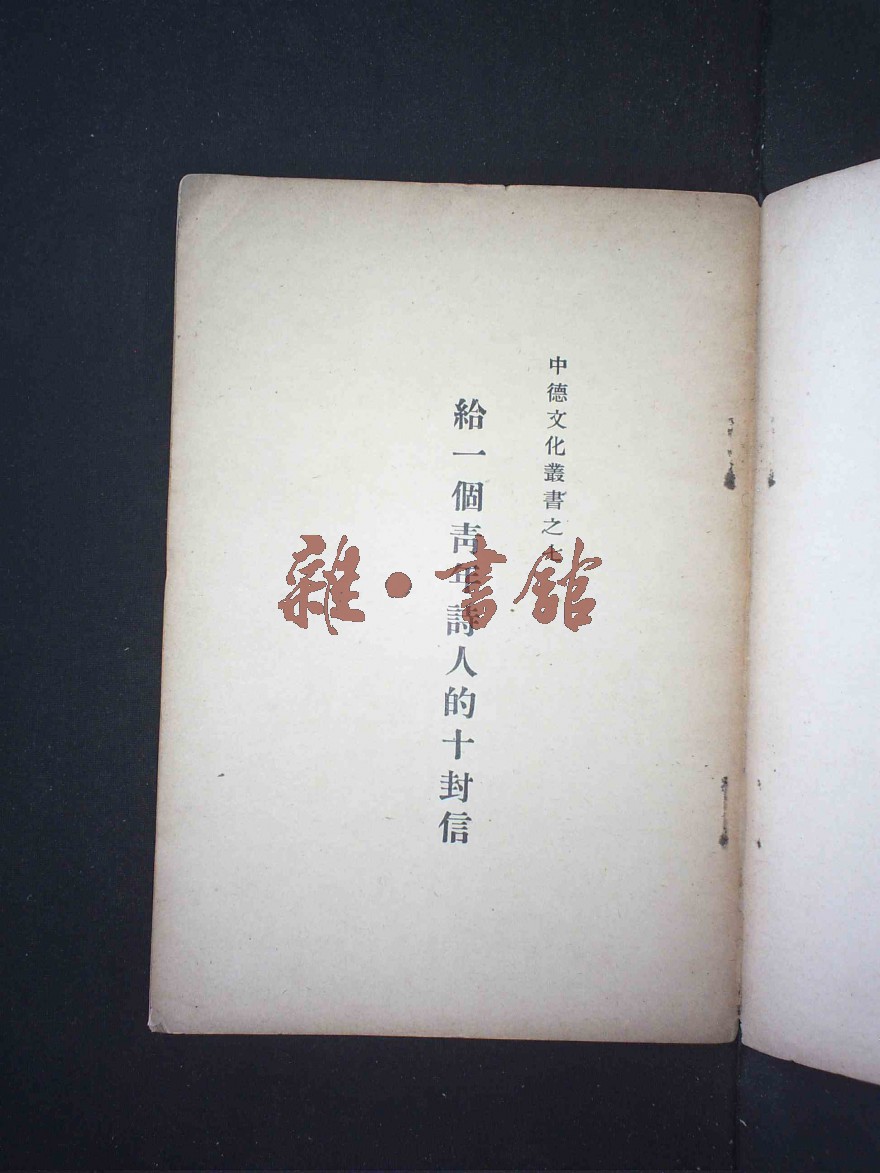 中德文化叢書之七
給一個靑年詩人的十封信
雜·書館